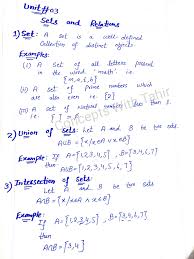 Unit#03
Sets and Relations
1) Set: A set is a well-defined
Collection of distinct objects.
Examples:
(i) A set of all letters present
in the word "math" i.e.
{m,a,t,h}
(ii) A set of Prime numbers which
are also even i.e. {2}
(iii) A set of natural number less than
2) Union of Sets: Let A and B be two sets
A∪B = {x/x∈A ∨ x∈B}
Example: If A={1,2,3,4,5}, B={3,4,6,7}
then
A∪B = {1,2,3,4,5,6,7}
3) Intersection of Sets:
Let A and B be two sets
A∩B = {x/x∈A ∧ x∈B}
Example:
If A={1,2,3,4,5}, B={3,4,6,7}
then
A∩B = {3,4}
Concepts with Tahir